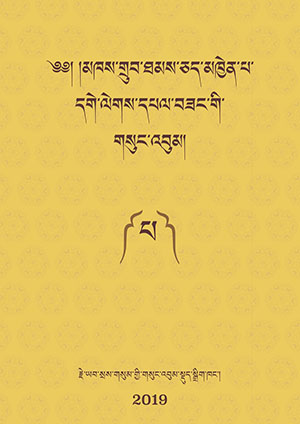 ༄༅། །མཁས་གྲུབ་ཐམས་ཅད་མཁྱེན་པ་
དགེ་ལེགས་དཔལ་བཟང་གི་
གསུང་འབུམ།
༼ ང ༽
རྗེ་ཡབ་སྲས་གསུམ་གྱི་གསུང་འབུམ་སྡུད་སྒྲིག་ཁང་།
2019